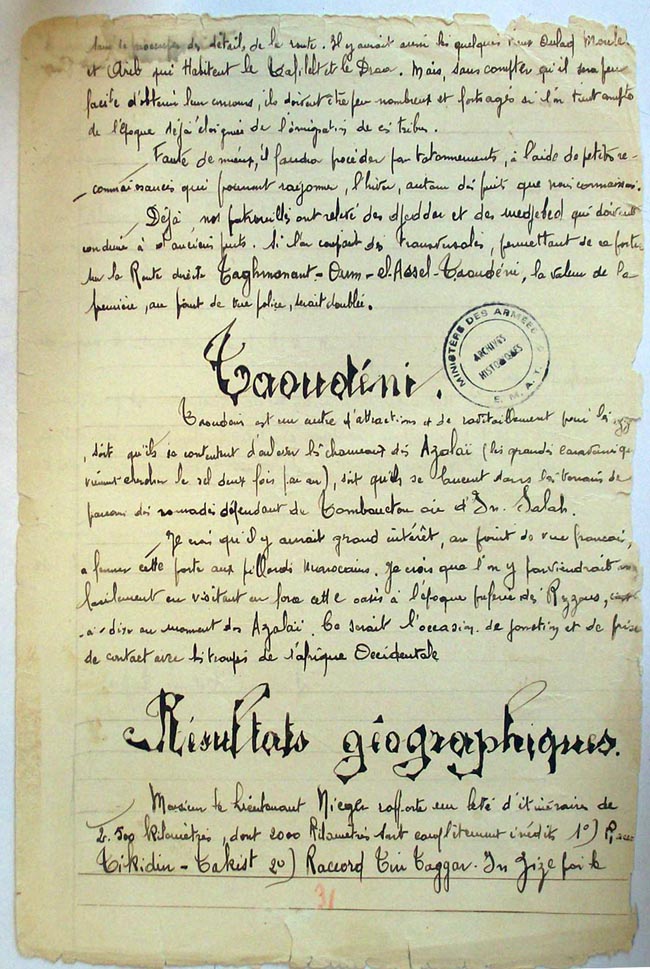 des détails de la route. Il y aurait aussi les quelques vieux Oulad Moulat
et Areb qui Habitent le Tafilelt et le Draa. Mais, sans compter qu'il sera peu
facile d'obtenir leur concours, ils doivent être peu nombreux et fort agés si l'on tient compte
de l'époque déjà éloignée de l'émigration de ces tribus.
Faute de mieux, il faudra procéder par tatonnements, à l'aide de petites re-
connaissances qui pourront rayonner, l'hiver, autour des puits que nous connaissons.
Déjà nos patrouilles ont relevé des djedder et des medjebed qui doivent
conduire à d'anciens puits. Si l'on coupait des transversales, permettant de se porter
sur la Route directe Taghmanant - Oum-el-Assel - Taoudéni, la valeur de la
première, au point de vue police, serait doublée.
MINISTÈRE DES ARMÉES
ARCHIVES
HISTORIQUES
E. M. A. T.
Taoudéni.
Taoudéni est un centre d'attractions et de ravitaillement pour les
, soit qu'ils se contentent d'enlever les chameaux des Azalaï (les grandes caravanes qui
viennent chercher le sel deux fois par an), soit qu'ils se lancent dans les terrains de
parcours des nomades dépendant de Tombouctou ou d'In Salah.
Je crois qu'il y aurait grand intérêt, au point de vue français,
a fermer cette porte aux pillards marocains. Je crois que l'on y parviendrait
facilement en visitant en force cette oasis à l'époque préférée des Rezzous, c'est
-à-dire au moment des Azalaï. Ce serait l'occasion de jonction et de prise
de contact avec les troupes de l'afrique Occidentale
Résultats géographiques.
Monsieur le Lieutenant Nieger rapporte un levé d'itinéraire de
2.500 kilomètres, dont 2000 Kilomètres sont complètement inédits 1º)
Tikidin - Takist 2º) Raccord Tin Taggar. In Zize par le
31